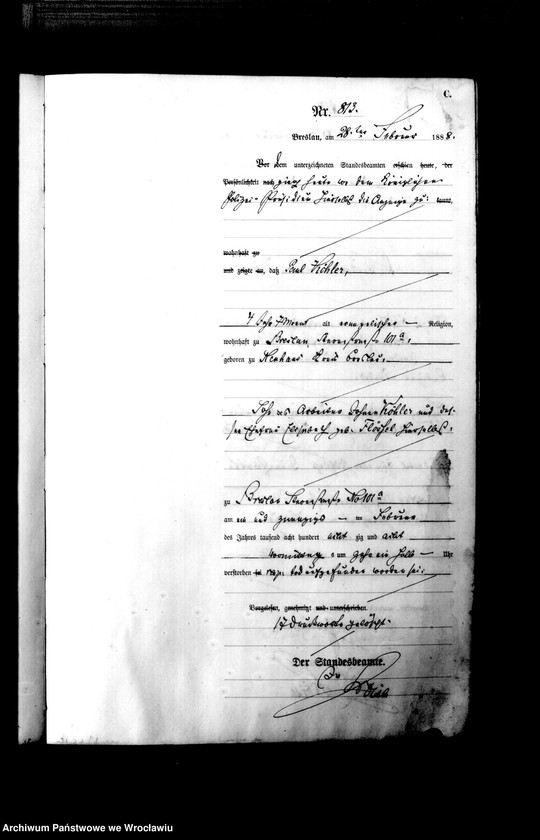 C.
Nr. 813.
Breslau, am 28. ten Februar 1888.
Vor dem unterzeichneten Standesbeamten erschien heute, der
Persönlichkeit nach heute von dem Königlichen
Polizei-Präsidium hierselbst die Anzeige zu: kannt,
wohnhaft zu
und zeigte an, daß Paul Köhler,
7 alt evangelischer Religion,
wohnhaft zu Breslau, 101 a,
geboren zu Kreis Breslau,
Sohn des Arbeiters Köhler und des-
sen Ehefrau geb. hierselbst,
zu Breslau No 101 a
am ein und zwanzigsten Februar
des Jahres tausend acht hundert acht zig und acht
Vormittags um zehn ein halb Uhr
verstorben todt aufgefunden worden sei.
Vorgelesen, genehmigt und unterschrieben.
17 Druckworte gelöscht.
Der Standesbeamte.
Archiwum Państwowe we Wrocławiu